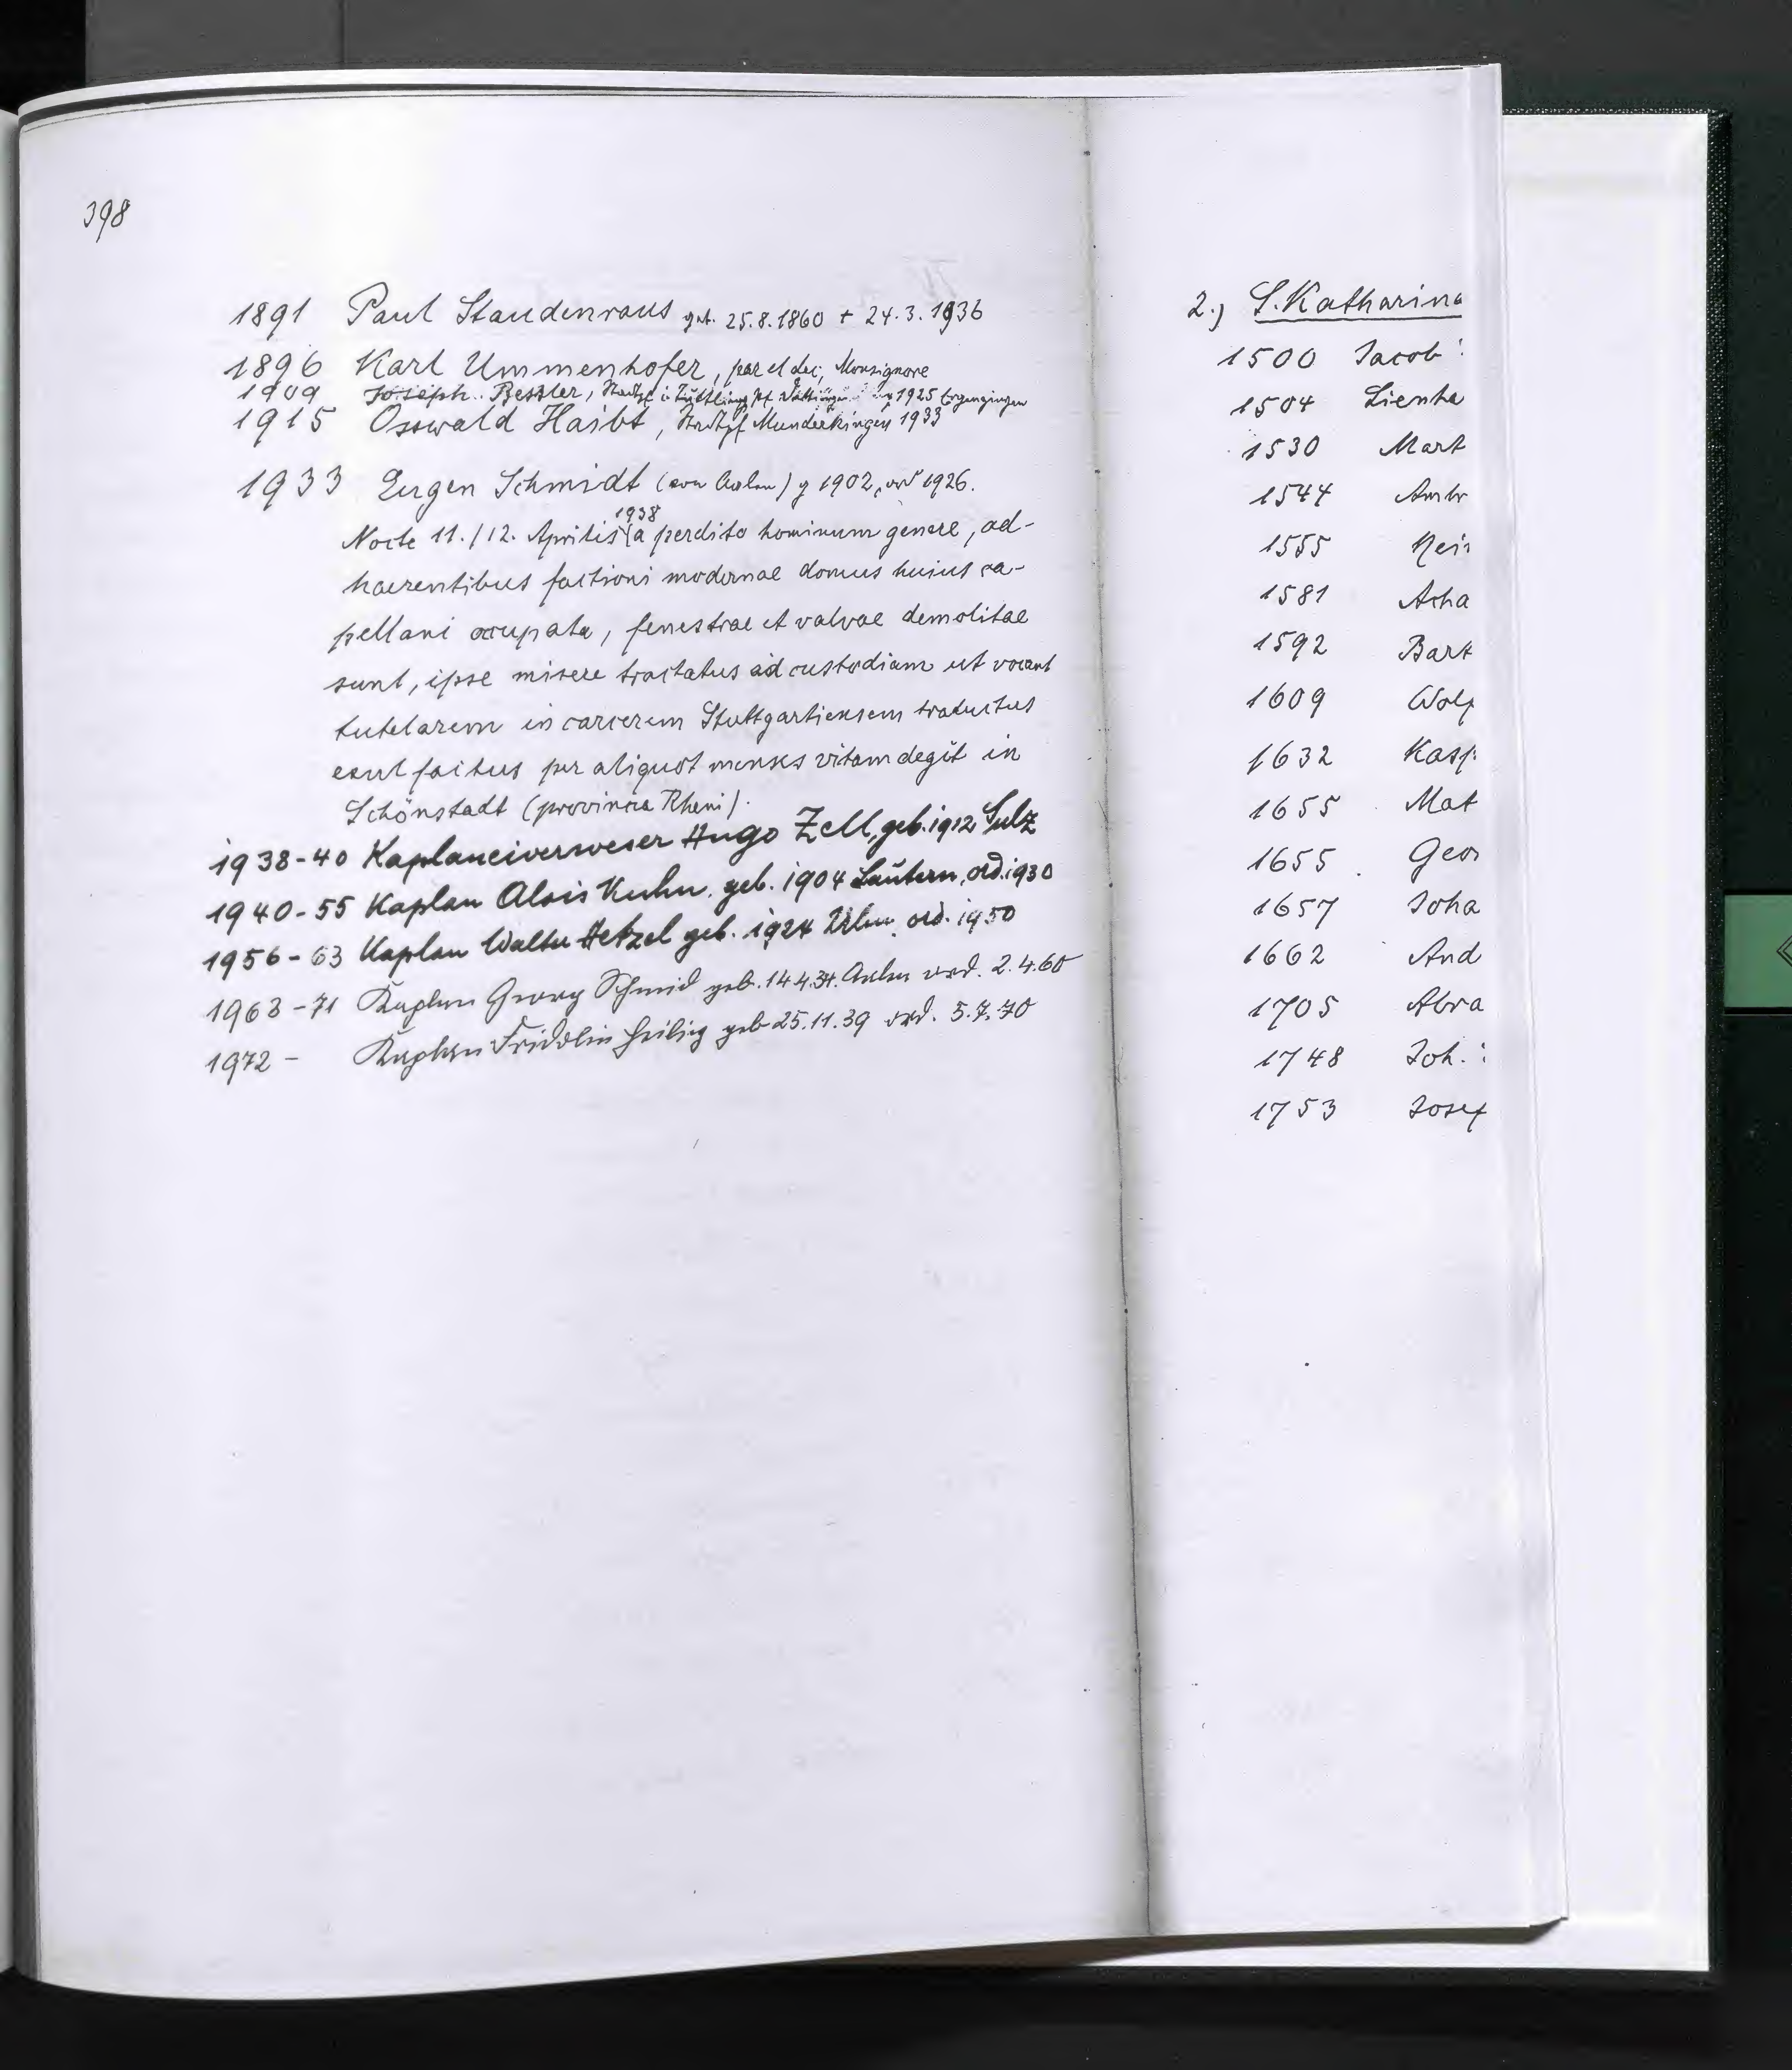 398
1891 Paul Staudenraus get. 25.8.1860 + 24.3.1936
1896 Karl Ummenhofer, par et dec, Monsignore
1909 Joseph Bessler, Stadtpf i Tuttling, Pf 1925 Ergenzingen
1915 Osswald Haibt, Stadtpf Munderkingen 1933
1933 Eugen Schmidt (von Aalen) g 1902, ord 1926.
1938
Nocte 11./12. Aprilis a perdito hominum genere, ad-
haerentibus factioni modernae domus huius ca-
pellani occupata, fenestrae et valvae demolitae
sunt, ipse misere tractatus ad custodiam ut vocant
tutelarem in carcerem Stuttgartiensem traductus
exul factus per aliquot menses vitam degit in
Schönstadt (provincia Rheni).
1938-40 Kaplaneiverweser Hugo Zell, geb. 1912 Sulz
1940-55 Kaplan Alois Kuhn, geb. 1904 Lautern, ord. 1930
1956-63 Kaplan Walter Hetzel geb. 1924 Ulm, ord. 1950
1963-71 Kaplan Georg Schmid geb. 14.4.34. Aalen ord. 2.4.60
1972 - Kaplan Fridolin Heilig geb 25.11.39 ord. 5.7.70
2.) S. Katharina
1500 Jacob
1504 Lienha
1530 Mart
1544 Ambr
1555 Hein
1581 Acha
1592 Bart
1609 Wolf
1632 Kasp
1655 Mat
1655 Geor
1657 Joha
1662 And
1705 Abra
1748 Joh.
1753 Josef